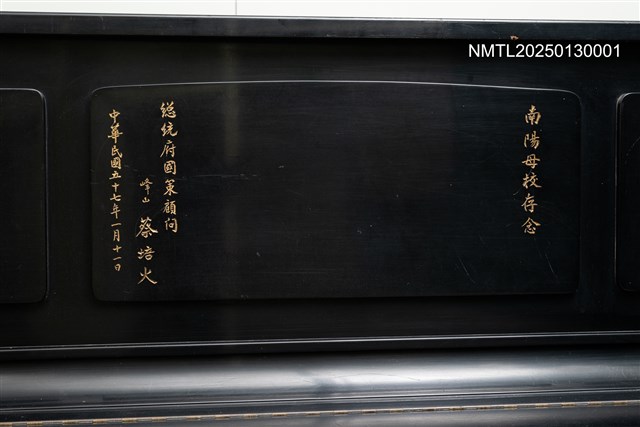 NMTL20250130001
南陽母校存念
總統府國策顧问
峰山 蔡培火
中華民國五十七年一月十一日